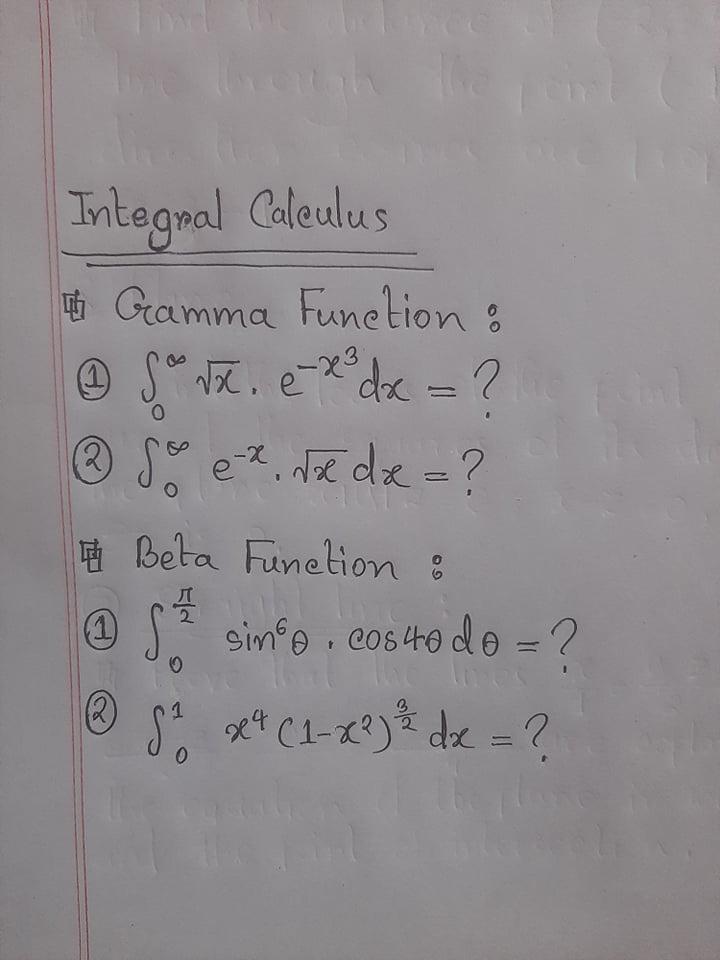 Integral Calculus
Gamma Function :
① ∫₀^∞ √x . e^{-x³} dx = ?
② ∫₀^∞ e^{-x} . √x dx = ?
Beta Function :
① ∫₀^{π/2} sin⁶θ . cos4θ dθ = ?
② ∫₀^1 x⁴ (1-x²)^{3/2} dx = ?